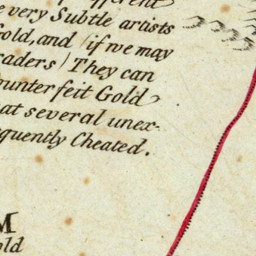 ifferent
e very Subtle artists
Gold, and (if we may
raders) They can
ounterfeit Gold
at several unex-
equently Cheated.
M
old